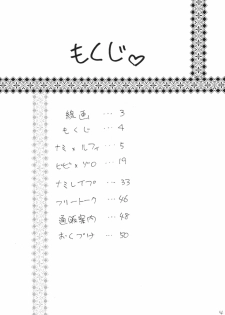 もくじ♡
線画 … 3
もくじ … 4
ナミxルフィ … 5
ビビxゾロ … 19
ナミレイプ … 33
フリートーク … 46
通販案内 … 48
おくづけ … 50
4